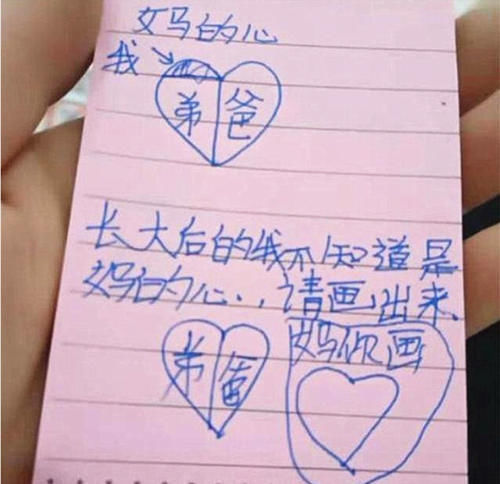 妈的心
我
弟 爸
长大后的我不知道是
妈的心..请画出来、
弟 爸 妈你画